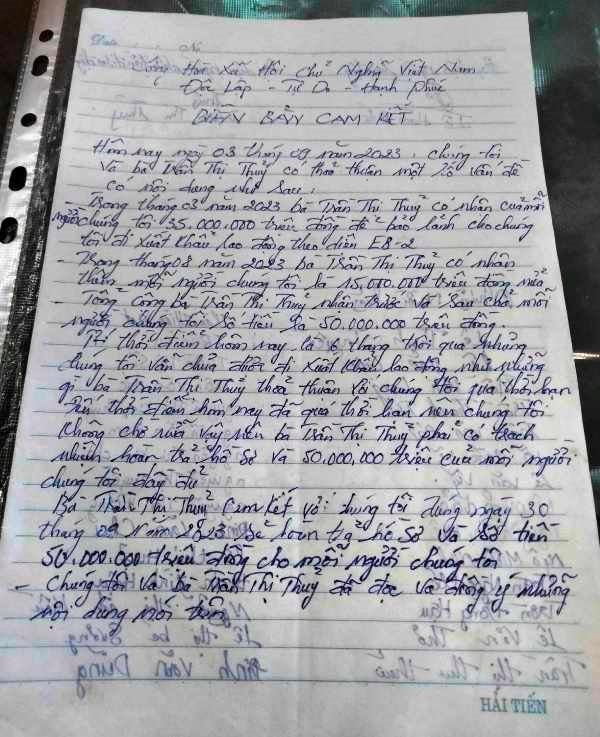 Hòa Xã Hội Chủ Nghĩa Việt Nam
Độc Lập - Tự Do - Hạnh Phúc
BẢN CAM KẾT
Hôm nay ngày 03 tháng 09 năm 2023, chúng tôi
Và bà Trần Thị Thuỷ có thoả thuận một số vấn đề
có nội dung như sau:
Trong tháng 03 năm 2023 bà Trần Thị Thuỷ có nhận của mỗi
người chúng tôi 35.000.000 triệu đồng để bảo lãnh cho chúng
tôi đi Xuất Khẩu lao động theo diện E8-2
- Trong tháng 08 năm 2023 bà Trần Thị Thuỷ có nhận
thêm mỗi người chúng tôi là 15,000.000 triệu đồng nữa
- Tổng Cộng bà Trần Thị Thuỷ nhận trước và sau của mỗi
người chúng tôi số tiền là 50.000.000 triệu đồng.
thời điểm hôm nay là 6 tháng trôi qua nhưng
chúng tôi vẫn chưa được đi Xuất Khẩu lao động như những
gì bà Trần Thị Thuỷ thoả thuận với chúng tôi qua thời hạn
thời điểm hôm nay đã qua thời hạn nên chúng tôi
Không chờ nữa vậy nên bà Trần Thị Thuỷ phải có trách
nhiệm hoàn trả hồ sơ và 50.000,000 triệu của mỗi người
chúng tôi đầy đủ
Bà Trần Thị Thuỷ Cam kết với chúng tôi đúng ngày 30
tháng 09 Năm 2023 sẽ hoàn trả hồ sơ và số tiền
50.000.000 triệu đồng cho mỗi người chúng tôi
- Chúng tôi và bà Trần Thị Thuỷ đã đọc và đồng ý những
nội dung nói trên
HẢI TIẾN